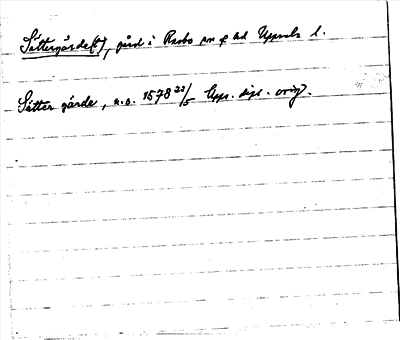 Sättergärde(t), gård i Rasbo sn o hd Uppsala l.
Sätter gärde, u.o. 1578 22/5 Upps. dipl. orig.